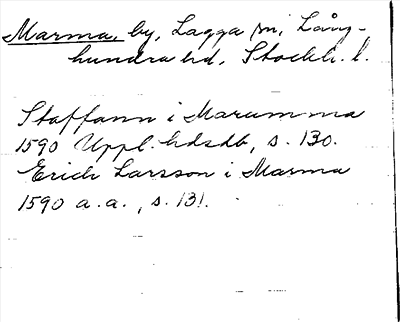 Marma by, Lagga sn, Lång-
hundra hd, Stockh. l.
Staffann i Marumma
1590 Uppl. hdsdb, s. 130.
Erich Larsson i Marma
1590 a. a., s. 131.